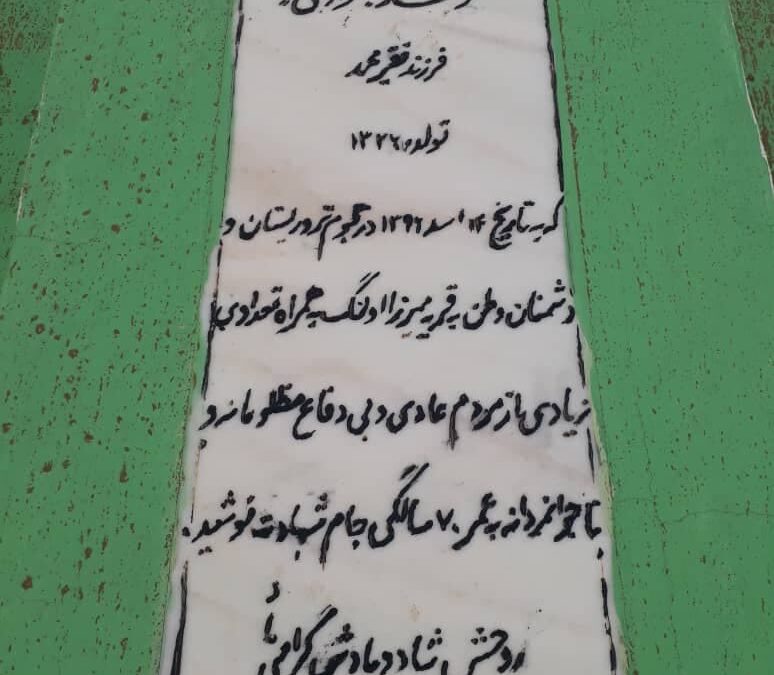 فرزند فقیر محمد
تولد ۱۳۲۶
که به تاریخ ۱۴ اسد ۱۳۹۶ در هجوم تروریستان و
دشمنان وطن به قریه میرزا اولنگ به همراه تعدادی
زیادی از مردم عادی و بی دفاع مظلومانه و
با جوانمردانه به عمر ۷۰ سالگی جام شهادت نوشید.
روحش شاد و یادش گرامی باد